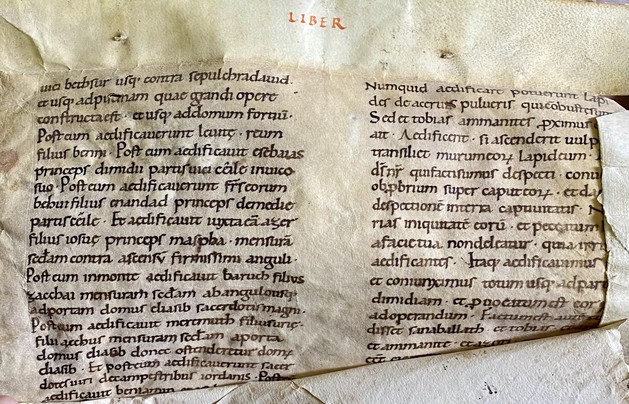 LIBER
uici bethsur usq; contra sepulchra dauid.
et usq; ad piscinam quae grandi opere
constructa est · et usq; ad domum fortiū ·
Post eum aedificauerunt leuitę · reum
filius benni · Post eum aedificauit esebaias
princeps dimidii partis uici ceile in uico
suo · Post eum aedificauerunt fr̄s eorum
bebui filius enandad princeps demedie
partis ceile · Et aedificauit iuxta eū azer
filius iosue princeps maspha · mensurā
sc̄dam contra ascensū firmissimi anguli ·
Post eum in monte aedificauit baruch filius
zacchai mensuram sc̄dam ab angulo usq;
ad portam domus eliasib sacerdotis magni ·
Post eum aedificauit meremuth filius urię ·
filii acchus mensuram sc̄dam a porta
domus eliasib donec ostenderetur dom;
eliasib · Et post eum aedificauerunt sacer
dotes uiri de campestribus iordanis · Post
aedificauit beniamin
Numquid aedificare poterunt lapi
des de aceruis pulueris qui combusti sunt
Sed et tobias ammanites proximus
ait · Aedificent · si ascenderit uulp
transiliet murum eorꝝ lapideum ·
dr̄ nr̄ quia facti sumus despecti · conu
obprbrium super caput eorꝝ · et da
despectione in terra captiuitatis · N
rias iniquitatē eorū · et peccatum
a facie tua non deleatur · quia irri
aedificantes · Itaq; aedificauimus
et coniunximus totum usq; ad part
dimidiam · et prouocatum est cor
ad operandum · Factum est aute
disset sanaballath · et tobias
et ammanite · et